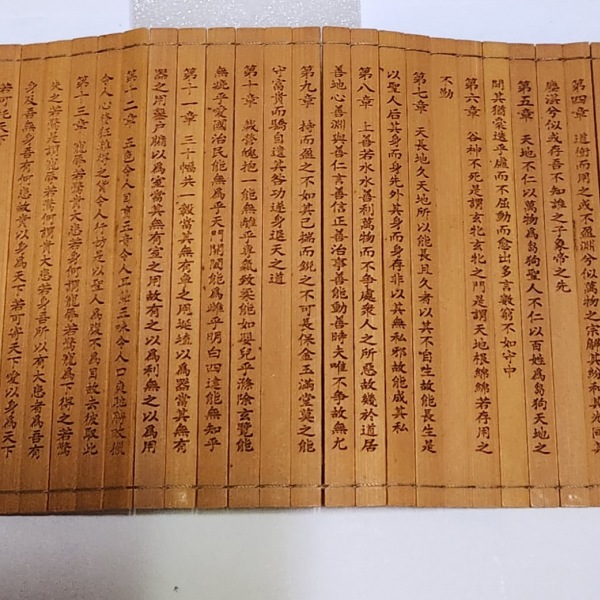 第四章 道衝而用之或不盈淵兮似萬物之宗解其紛和其光同其
塵湛兮似或存吾不知誰之子象帝之先
第五章 天地不仁以萬物為芻狗聖人不仁以百姓為芻狗天地之
間其猶橐迭乎虛而不屈動而愈出多言數窮不如守中
第六章 谷神不死是謂玄牝玄牝之門是謂天地根綿綿若存用之
不勤
第七章 天長地久天地所以能長且久者以其不自生故能長生是
以聖人后其身而身先外其身而身存非以其無私邪故能成其私
第八章 上善若水水善利萬物而不爭處衆人之所惡故幾於道居
善地心善淵與善仁言善信正善治事善能動善時夫唯不爭故無尤
第九章 持而盈之不如其已揣而銳之不可長保金玉滿堂莫之能
守富貴而驕自遺其咎功遂身退天之道
第十章 載營魄抱一能無離乎專氣致柔能如嬰兒乎滌除玄覽能
無疵乎愛國治民能無為乎天門開闔能為雌乎明白四達能無知乎
第十一章 三十幅共一轂當其無有車之用埏埴以為器當其無有
器之用鑿戶牖以為室當其無有室之用故有之以為利無之以為用
第十二章 五色令人目盲五音令人耳聾五味令人口爽馳騁畋獵
令人心發狂難得之貨令人行妨是以聖人為腹不為目故去彼取此
第十三章 寵辱若驚貴大患若身何謂寵辱若驚寵為下得之若驚
失之若驚是謂寵辱若驚何謂貴大患若身吾所以有大患者為吾有
身及吾無身吾有何患故貴以身為天下若可寄天下愛以身為天下
若可托天下